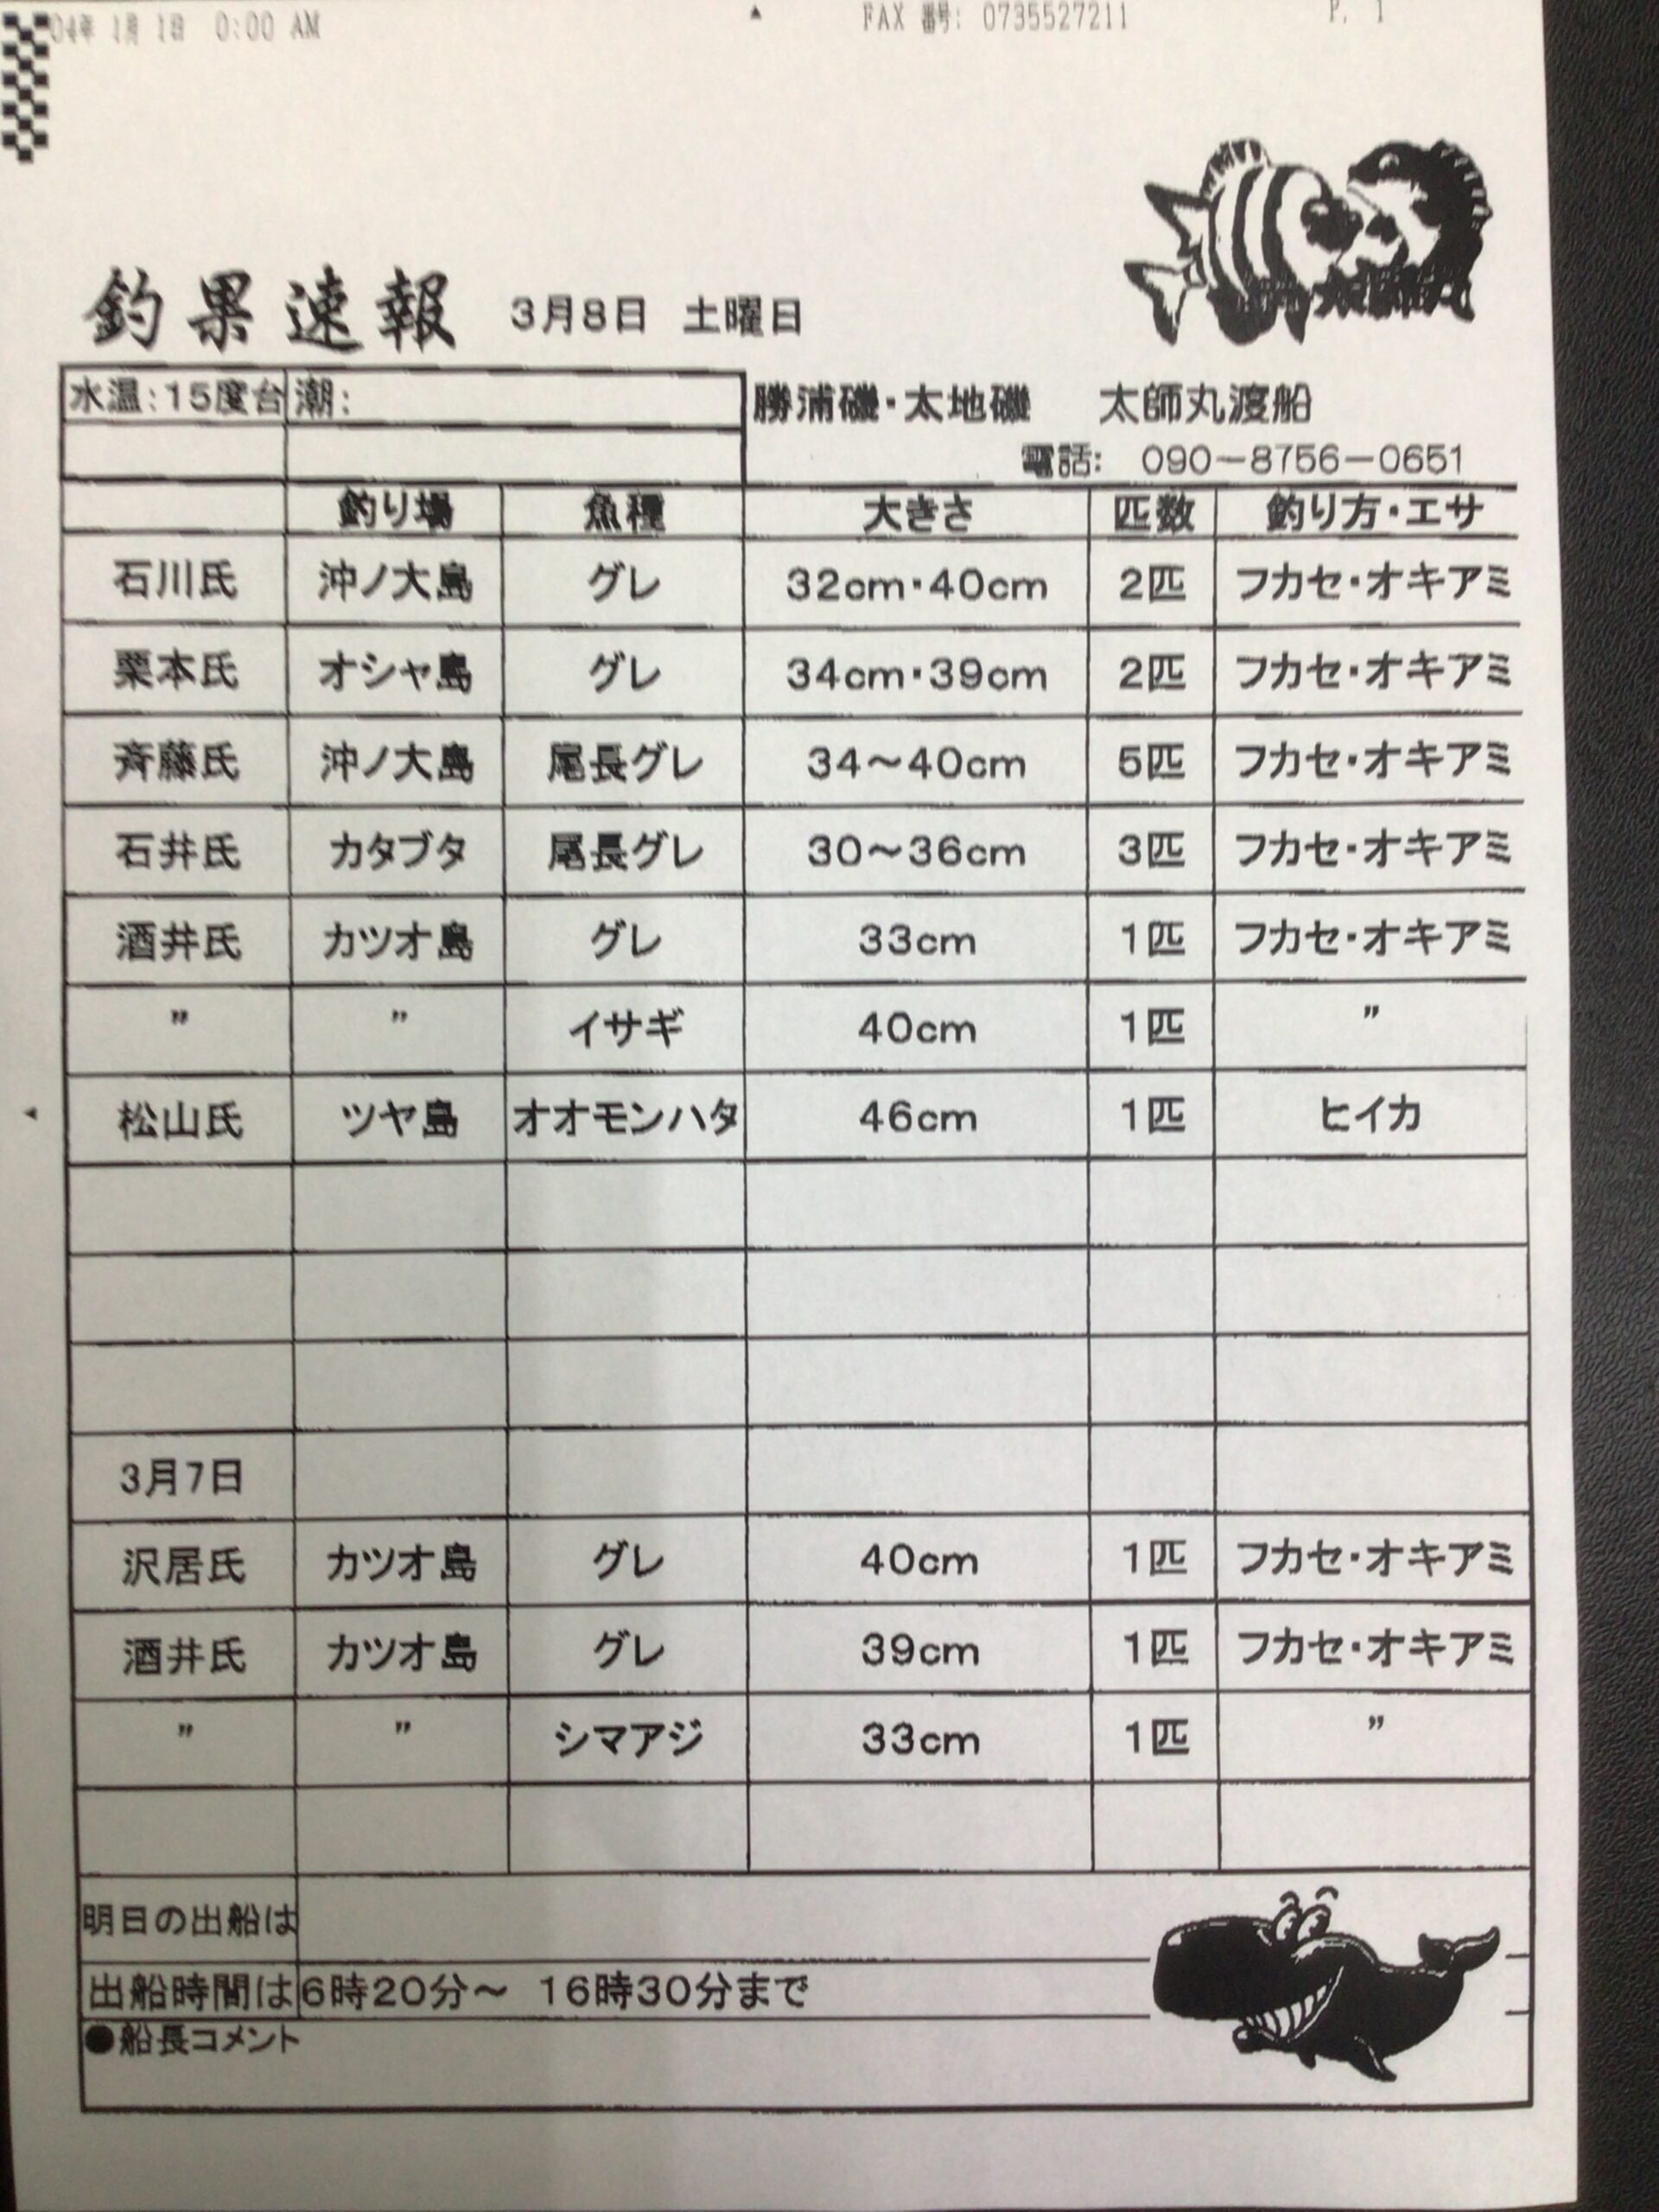 04年 1月 1日 0:00 AM FAX 番号: 0735527211 P. 1
釣果速報 3月8日 土曜日
水温:15度台 潮: 勝浦磯・太地磯 太師丸渡船
電話: 090-8756-0651
釣り場 魚種 大きさ 匹数 釣り方・エサ
石川氏 沖ノ大島 グレ 32cm・40cm 2匹 フカセ・オキアミ
栗本氏 オシャ島 グレ 34cm・39cm 2匹 フカセ・オキアミ
斉藤氏 沖ノ大島 尾長グレ 34〜40cm 5匹 フカセ・オキアミ
石井氏 カタブタ 尾長グレ 30〜36cm 3匹 フカセ・オキアミ
酒井氏 カツオ島 グレ 33cm 1匹 フカセ・オキアミ
〃 〃 イサギ 40cm 1匹 〃
松山氏 ツヤ島 オオモンハタ 46cm 1匹 ヒイカ
3月7日
沢居氏 カツオ島 グレ 40cm 1匹 フカセ・オキアミ
酒井氏 カツオ島 グレ 39cm 1匹 フカセ・オキアミ
〃 〃 シマアジ 33cm 1匹 〃
明日の出船は
出船時間は 6時20分〜 16時30分まで
●船長コメント